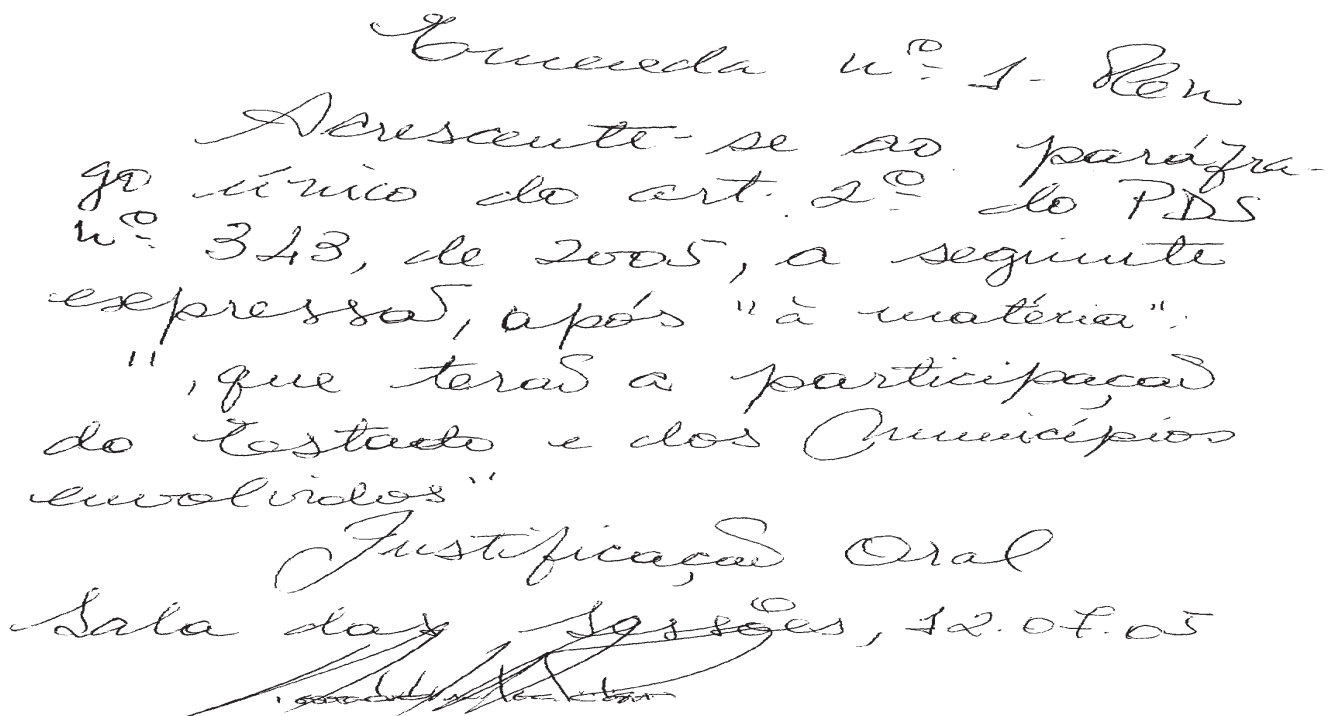 Emenda nº 1 - Plen
Acrescente-se ao parágra-
go único do art. 2º do PDS
nº 343, de 2005, a seguinte
expressão, após "à matéria":
", que terão a participação
do Estado e dos Municípios
envolvidos"
Justificação Oral
Sala das Sessões, 12.07.05